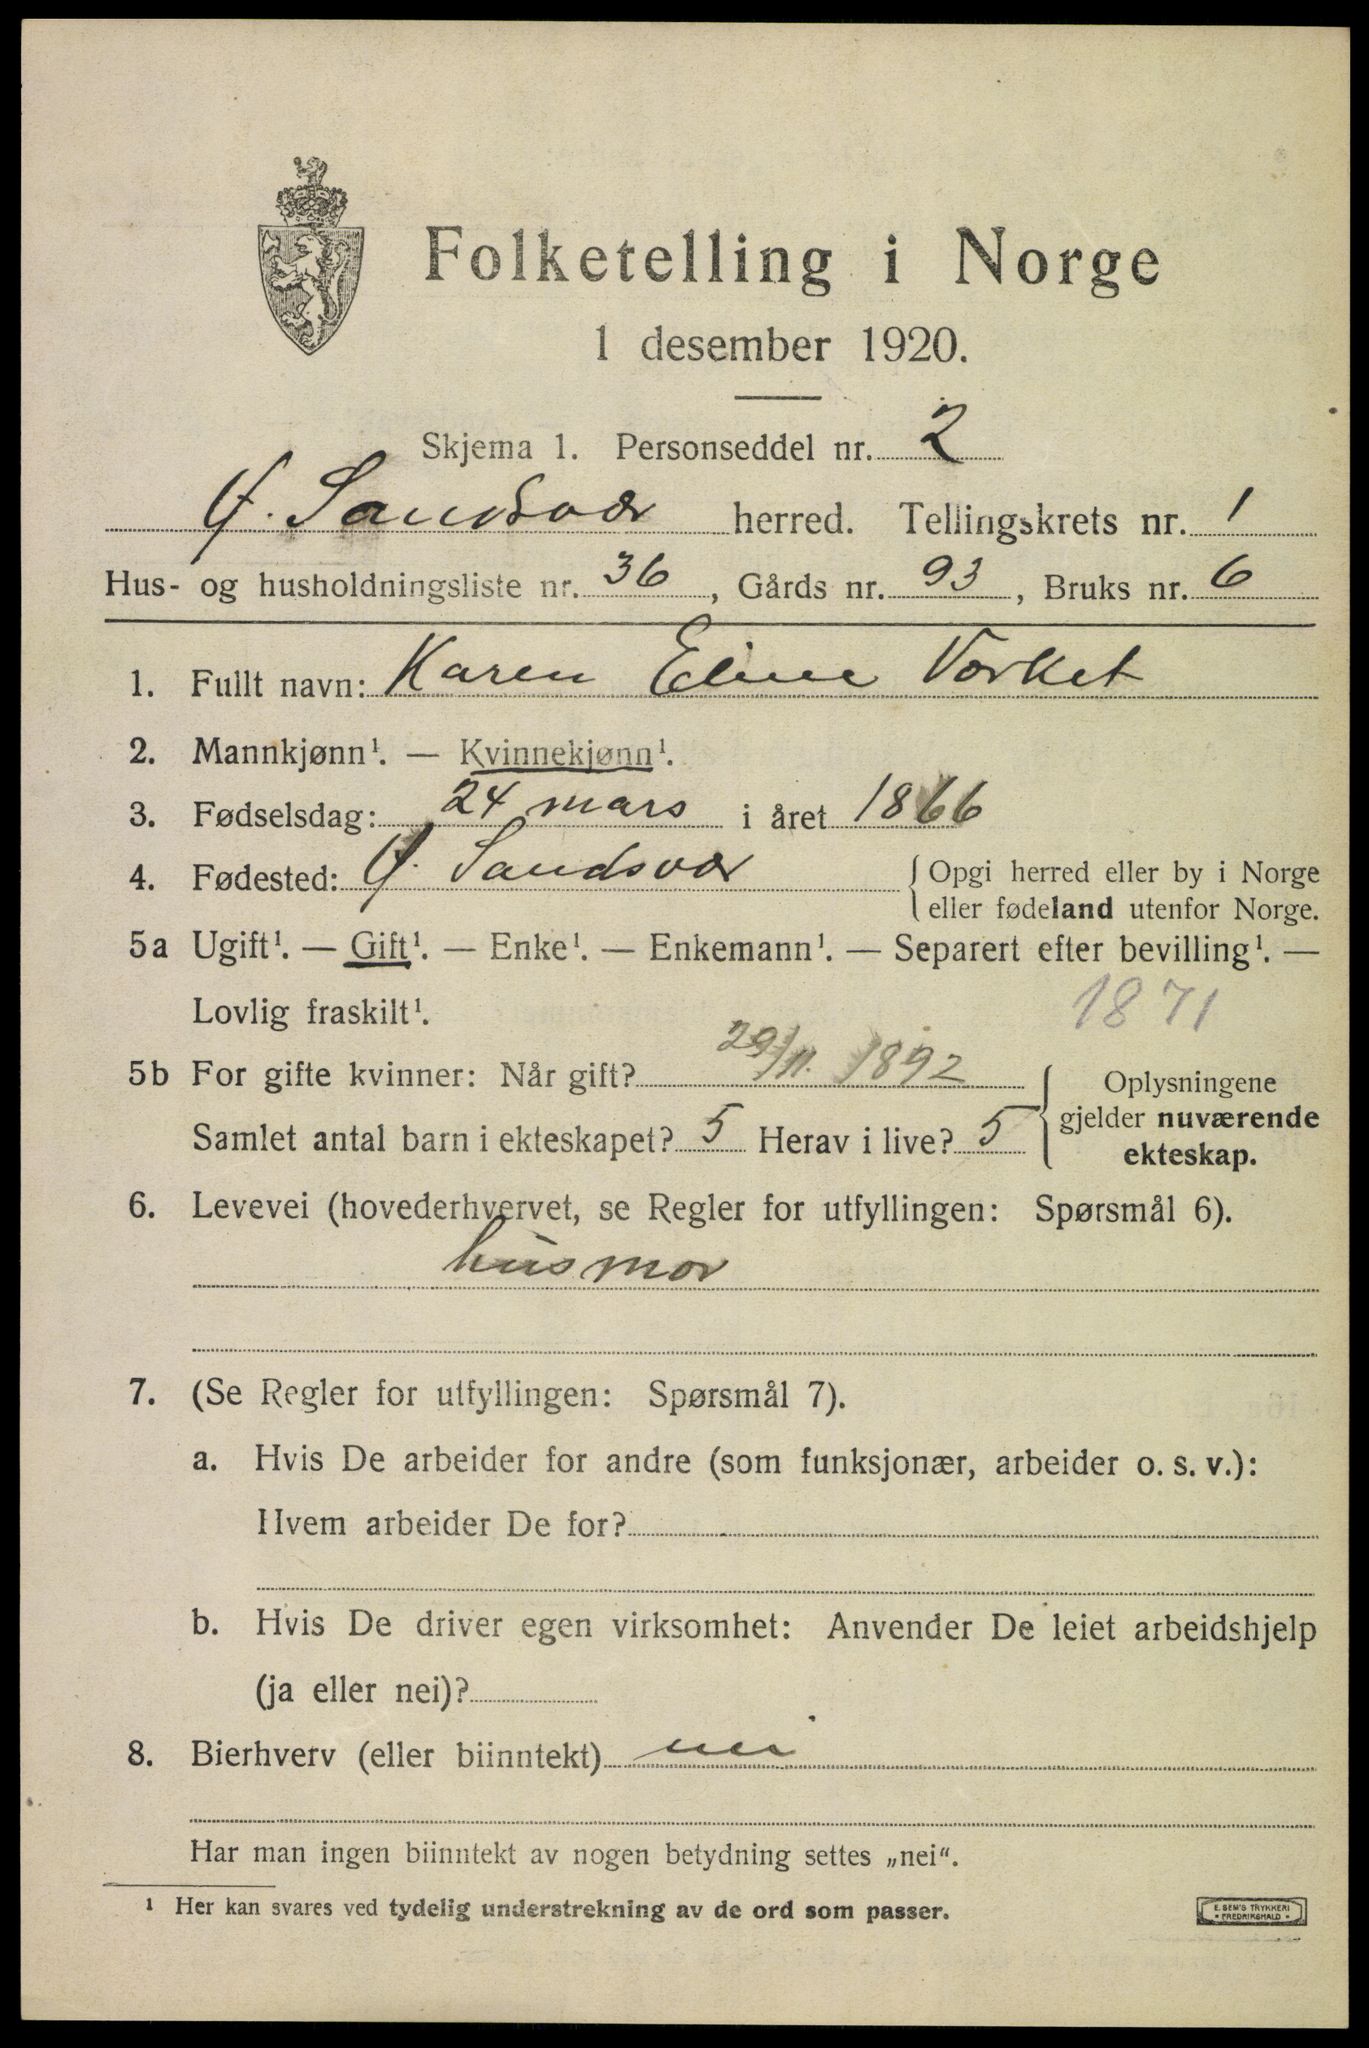 Folketelling i Norge
1 desember 1920.
Skjema 1. Personseddel nr. 2
Ø. Sandsvær herred. Tellingskrets nr. 1
Hus- og husholdningsliste nr. 36, Gårds nr. 93, Bruks nr. 6
1. Fullt navn: Karen Eline Vorket
2. Mannkjønn¹. — Kvinnekjønn¹.
3. Fødselsdag: 24 mars i året 1866
4. Fødested: Ø. Sandsvær { Opgi herred eller by i Norge
eller fødeland utenfor Norge.
5a Ugift¹. — Gift¹. — Enke¹. — Enkemann¹. — Separert efter bevilling¹. —
Lovlig fraskilt¹. 1871
5b For gifte kvinner: Når gift? 29/11. 1892
Samlet antal barn i ekteskapet? 5 Herav i live? 5
{ Oplysningene
gjelder nuværende
ekteskap.
6. Levevei (hovederhvervet, se Regler for utfyllingen: Spørsmål 6).
husmor
7. (Se Regler for utfyllingen: Spørsmål 7).
a. Hvis De arbeider for andre (som funksjonær, arbeider o. s. v.):
Hvem arbeider De for?
b. Hvis De driver egen virksomhet: Anvender De leiet arbeidshjelp
(ja eller nei)?
8. Bierhverv (eller biinntekt) nei
Har man ingen biinntekt av nogen betydning settes „nei“.
¹ Her kan svares ved tydelig understrekning av de ord som passer.
E. SEM'S TRYKKERI
• FREDRIKSHALD •